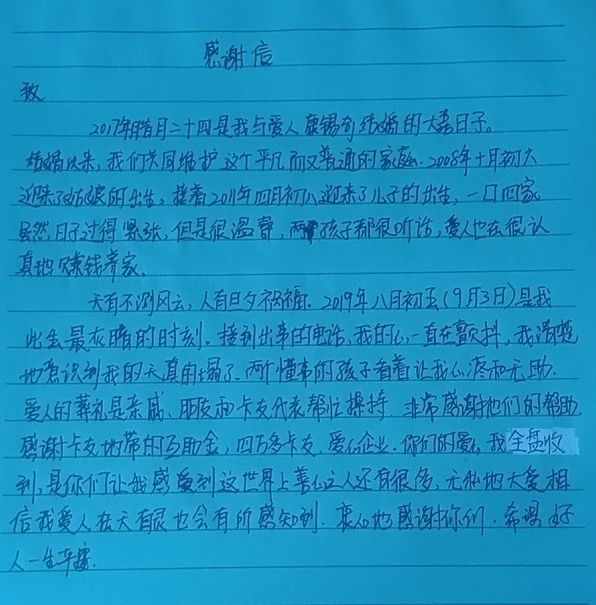 感谢信
致
2017年腊月二十四是我与爱人 康锡奇结婚的大喜日子。
结婚以来,我们共同维护这个平凡而又普通的家庭. 2008年十月初六
迎来了女孩的出生,接着2011年四月初八迎来了儿子的出生,一口四家
虽然日子过得紧张,但是很温馨,两个孩子都很听话,爱人也在很认
真地赚钱养家。
天有不测风云,人有旦夕祸福. 2019年八月初五(9月3日)是我
此生最灰暗的时刻.接到出事的电话,我的心一直在颤抖,我清楚
地意识到我的天真的塌了.两个懂事的孩子看着让我心疼和无助.
爱人的葬礼是亲戚、朋友和卡友代表帮忙操持 非常感谢他们的帮助
感谢卡友地带的互助金,四万多卡友.爱心企业.你们的爱心我全盘收
到,是你们让我感受到这世界上善心之人还有很多,无私地大爱相
信我爱人在天有灵也会有所感知到.衷心地感谢你们.希望好
人一生平安.